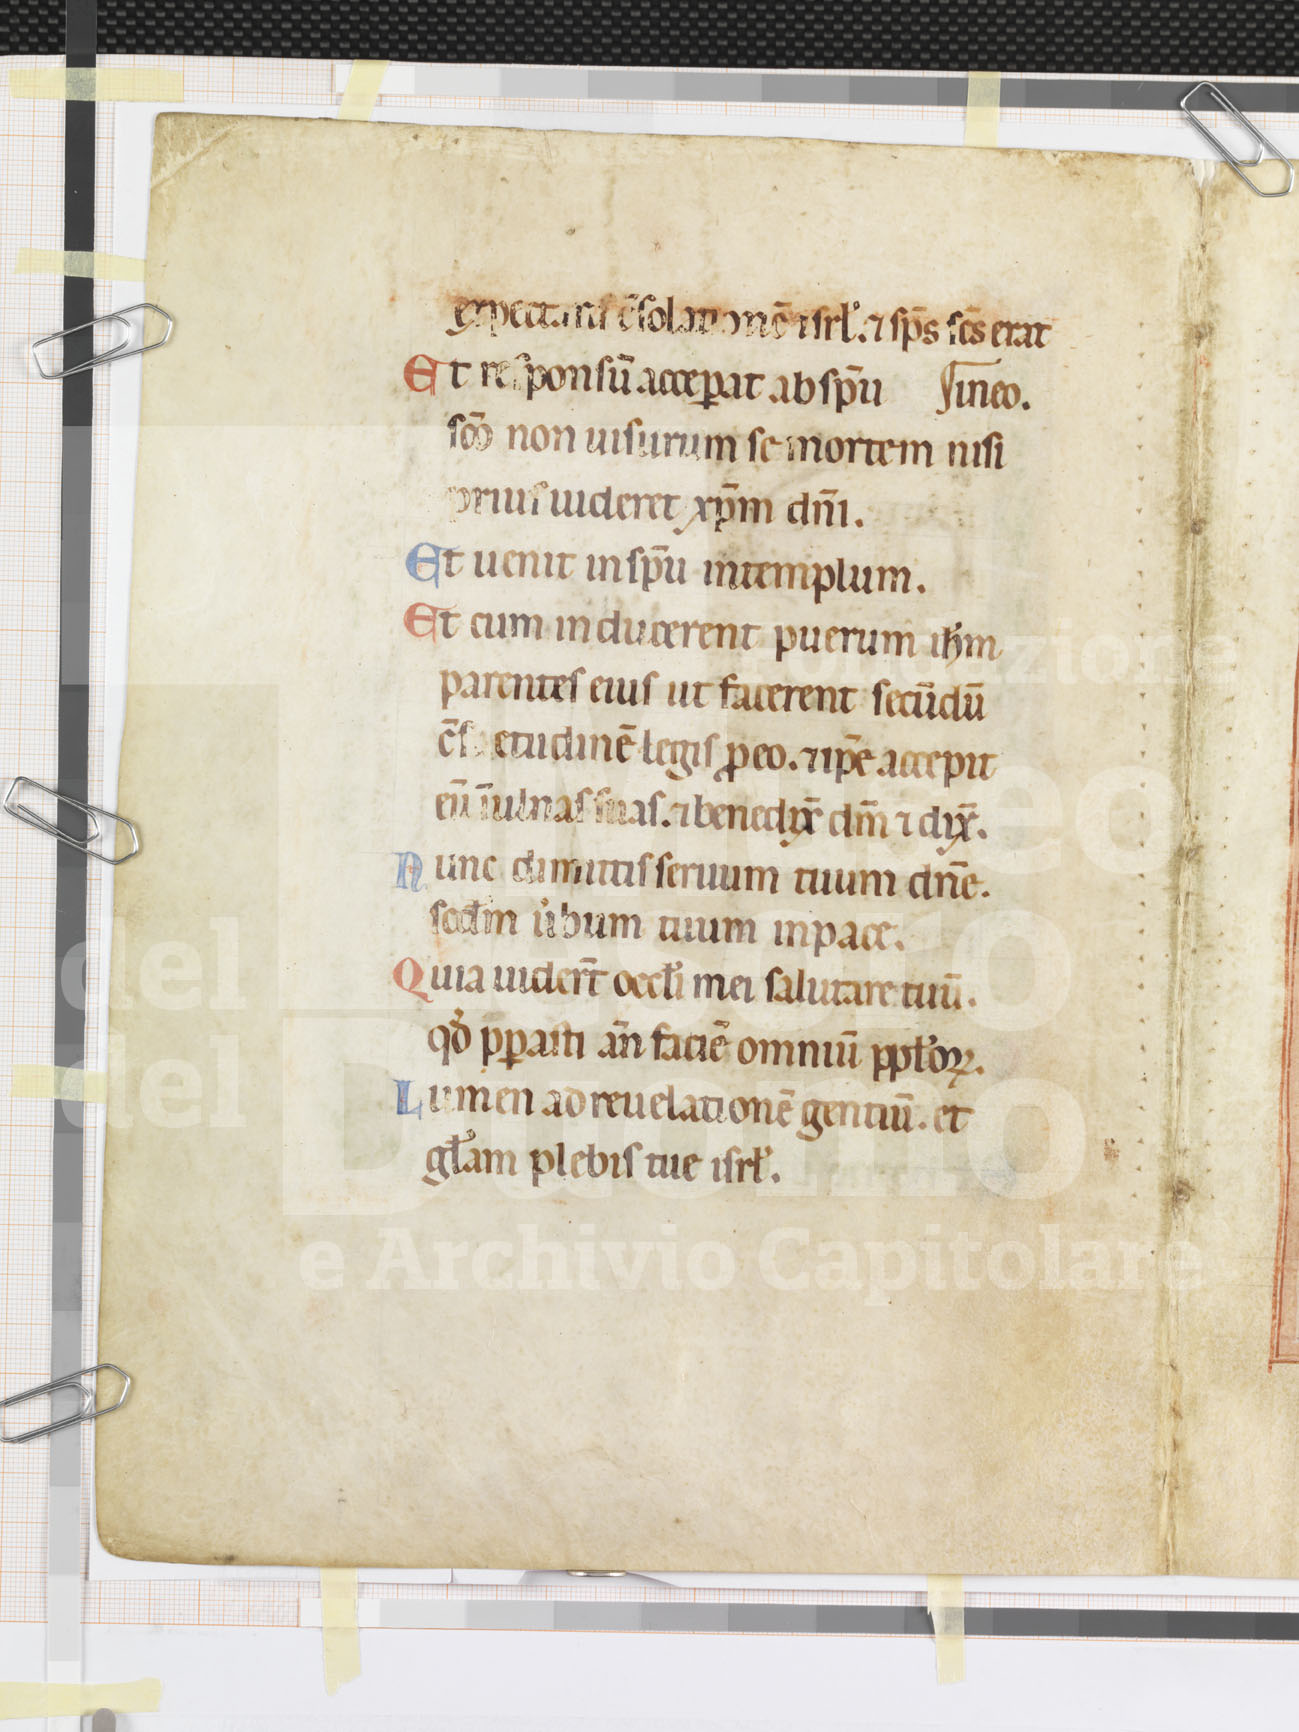 expectans c̄solationē isrl̓. ⁊ sp̄s sc̄s erat
Et responsū acceperat ab sp̄u in eo.
sc̄o non uisurum se mortem nisi
prius uideret xp̄m dn̄i.
Et uenit in sp̄u in templum.
Et cum inducerent puerum ih̄m
parentes eius ut facerent secūdū
c̄suetudinē legis ꝓ eo. ⁊ ip̄e accepit
eū ī ulnas suas. ⁊ benedix̄ dm̄ ⁊ dix̄.
Nunc dimittis seruum tuum dn̄e.
scd̄m u̓bum tuum in pace.
Quia uider̄t occl̓i mei salutare tuū.
qd̓ p̄ꝑasti an̄ faciē omniū ppl̓oꝝ.
Lumen ad reuelationē gentiū. et
gl̓am plebis tue isrl̓.
Fondazione
Museo
del Tesoro
del Duomo
e Archivio Capitolare